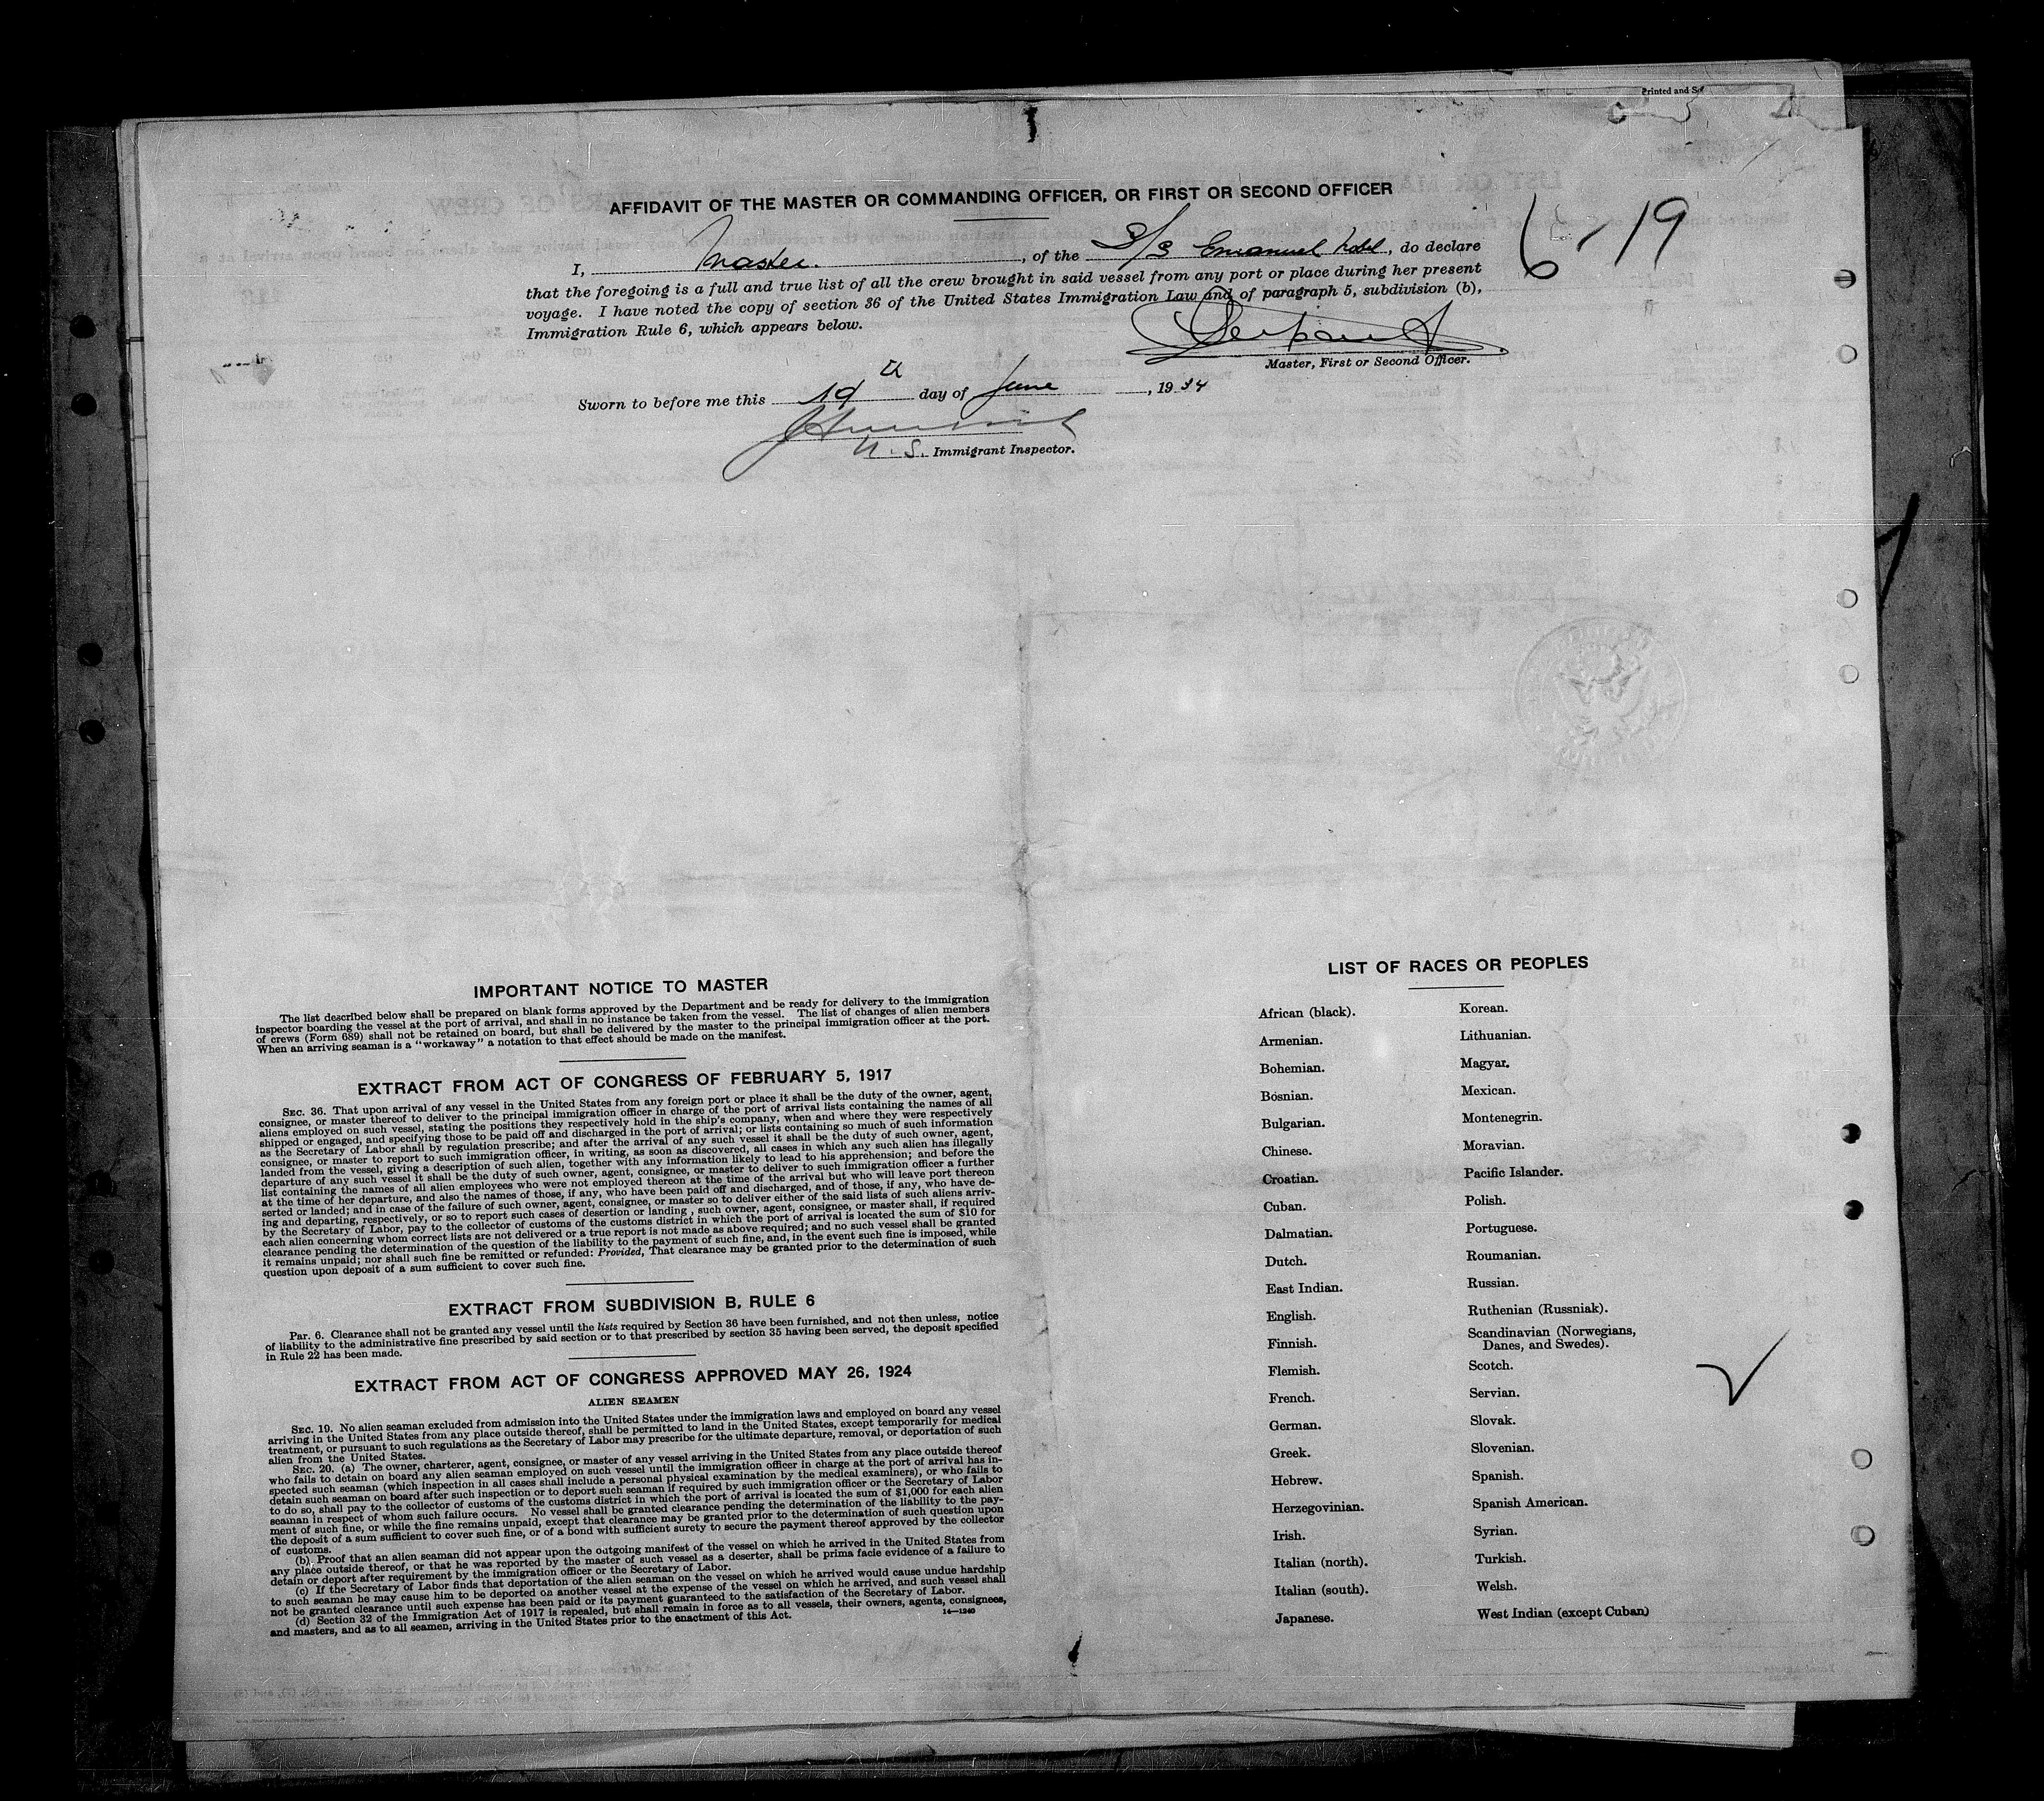 Printed and S
AFFIDAVIT OF THE MASTER OR COMMANDING OFFICER, OR FIRST OR SECOND OFFICER
6-19
I, Master. , of the S/S Emanuel Nobel, do declare
that the foregoing is a full and true list of all the crew brought in said vessel from any port or place during her present
voyage. I have noted the copy of section 36 of the United States Immigration Law and of paragraph 5, subdivision (b),
Immigration Rule 6, which appears below.
Master, First or Second Officer.
Sworn to before me this 19 th day of June, 1934
U.S. Immigrant Inspector.
IMPORTANT NOTICE TO MASTER
The list described below shall be prepared on blank forms approved by the Department and be ready for delivery to the immigration
inspector boarding the vessel at the port of arrival, and shall in no instance be taken from the vessel. The list of changes of alien members
of crews (Form 689) shall not be retained on board, but shall be delivered by the master to the principal immigration officer at the port.
When an arriving seaman is a "workaway" a notation to that effect should be made on the manifest.
EXTRACT FROM ACT OF CONGRESS OF FEBRUARY 5, 1917
SEC. 36. That upon arrival of any vessel in the United States from any foreign port or place it shall be the duty of the owner, agent,
consignee, or master thereof to deliver to the principal immigration officer in charge of the port of arrival lists containing the names of all
aliens employed on such vessel, stating the positions they respectively hold in the ship's company, when and where they were respectively
shipped or engaged, and specifying those to be paid off and discharged in the port of arrival; or lists containing so much of such information
as the Secretary of Labor shall by regulation prescribe; and after the arrival of any such vessel it shall be the duty of such owner, agent,
consignee, or master to report to such immigration officer, in writing, as soon as discovered, all cases in which any such alien has illegally
landed from the vessel, giving a description of such alien, together with any information likely to lead to his apprehension; and before the
departure of any such vessel it shall be the duty of such owner, agent, consignee, or master to deliver to such immigration officer a further
list containing the names of all alien employees who were not employed thereon at the time of the arrival but who will leave port thereon
at the time of her departure, and also the names of those, if any, who have been paid off and discharged, and of those, if any, who have de-
serted or landed; and in case of the failure of such owner, agent, consignee, or master so to deliver either of the said lists of such aliens arriv-
ing and departing, respectively, or so to report such cases of desertion or landing , such owner, agent, consignee, or master shall, if required
by the Secretary of Labor, pay to the collector of customs of the customs district in which the port of arrival is located the sum of $10 for
each alien concerning whom correct lists are not delivered or a true report is not made as above required; and no such vessel shall be granted
clearance pending the determination of the question of the liability to the payment of such fine, and, in the event such fine is imposed, while
it remains unpaid; nor shall such fine be remitted or refunded: Provided, That clearance may be granted prior to the determination of such
question upon deposit of a sum sufficient to cover such fine.
EXTRACT FROM SUBDIVISION B, RULE 6
Par. 6. Clearance shall not be granted any vessel until the lists required by Section 36 have been furnished, and not then unless, notice
of liability to the administrative fine prescribed by said section or to that prescribed by section 35 having been served, the deposit specified
in Rule 22 has been made.
EXTRACT FROM ACT OF CONGRESS APPROVED MAY 26, 1924
ALIEN SEAMEN
SEC. 19. No alien seaman excluded from admission into the United States under the immigration laws and employed on board any vessel
arriving in the United States from any place outside thereof, shall be permitted to land in the United States, except temporarily for medical
treatment, or pursuant to such regulations as the Secretary of Labor may prescribe for the ultimate departure, removal, or deportation of such
alien from the United States.
SEC. 20. (a) The owner, charterer, agent, consignee, or master of any vessel arriving in the United States from any place outside thereof
who fails to detain on board any alien seaman employed on such vessel until the immigration officer in charge at the port of arrival has in-
spected such seaman (which inspection in all cases shall include a personal physical examination by the medical examiners), or who fails to
detain such seaman on board after such inspection or to deport such seaman if required by such immigration officer or the Secretary of Labor
to do so, shall pay to the collector of customs of the customs district in which the port of arrival is located the sum of $1,000 for each alien
seaman in respect of whom such failure occurs. No vessel shall be granted clearance pending the determination of the liability to the pay-
ment of such fine, or while the fine remains unpaid, except that clearance may be granted prior to the determination of such question upon
the deposit of a sum sufficient to cover such fine, or of a bond with sufficient surety to secure the payment thereof approved by the collector
of customs.
(b) Proof that an alien seaman did not appear upon the outgoing manifest of the vessel on which he arrived in the United States from
any place outside thereof, or that he was reported by the master of such vessel as a deserter, shall be prima facie evidence of a failure to
detain or deport after requirement by the immigration officer or the Secretary of Labor.
(c) If the Secretary of Labor finds that deportation of the alien seaman on the vessel on which he arrived would cause undue hardship
to such seaman he may cause him to be deported on another vessel at the expense of the vessel on which he arrived, and such vessel shall
not be granted clearance until such expense has been paid or its payment guaranteed to the satisfaction of the Secretary of Labor.
(d) Section 32 of the Immigration Act of 1917 is repealed, but shall remain in force as to all vessels, their owners, agents, consignees,
and masters, and as to all seamen, arriving in the United States prior to the enactment of this Act.
14—1240
LIST OF RACES OR PEOPLES
African (black).
Armenian.
Bohemian.
Bosnian.
Bulgarian.
Chinese.
Croatian.
Cuban.
Dalmatian.
Dutch.
East Indian.
English.
Finnish.
Flemish.
French.
German.
Greek.
Hebrew.
Herzegovinian.
Irish.
Italian (north).
Italian (south).
Japanese.
Korean.
Lithuanian.
Magyar.
Mexican.
Montenegrin.
Moravian.
Pacific Islander.
Polish.
Portuguese.
Roumanian.
Russian.
Ruthenian (Russniak).
Scandinavian (Norwegians,
Danes, and Swedes).
Scotch.
Servian.
Slovak.
Slovenian.
Spanish.
Spanish American.
Syrian.
Turkish.
Welsh.
West Indian (except Cuban)